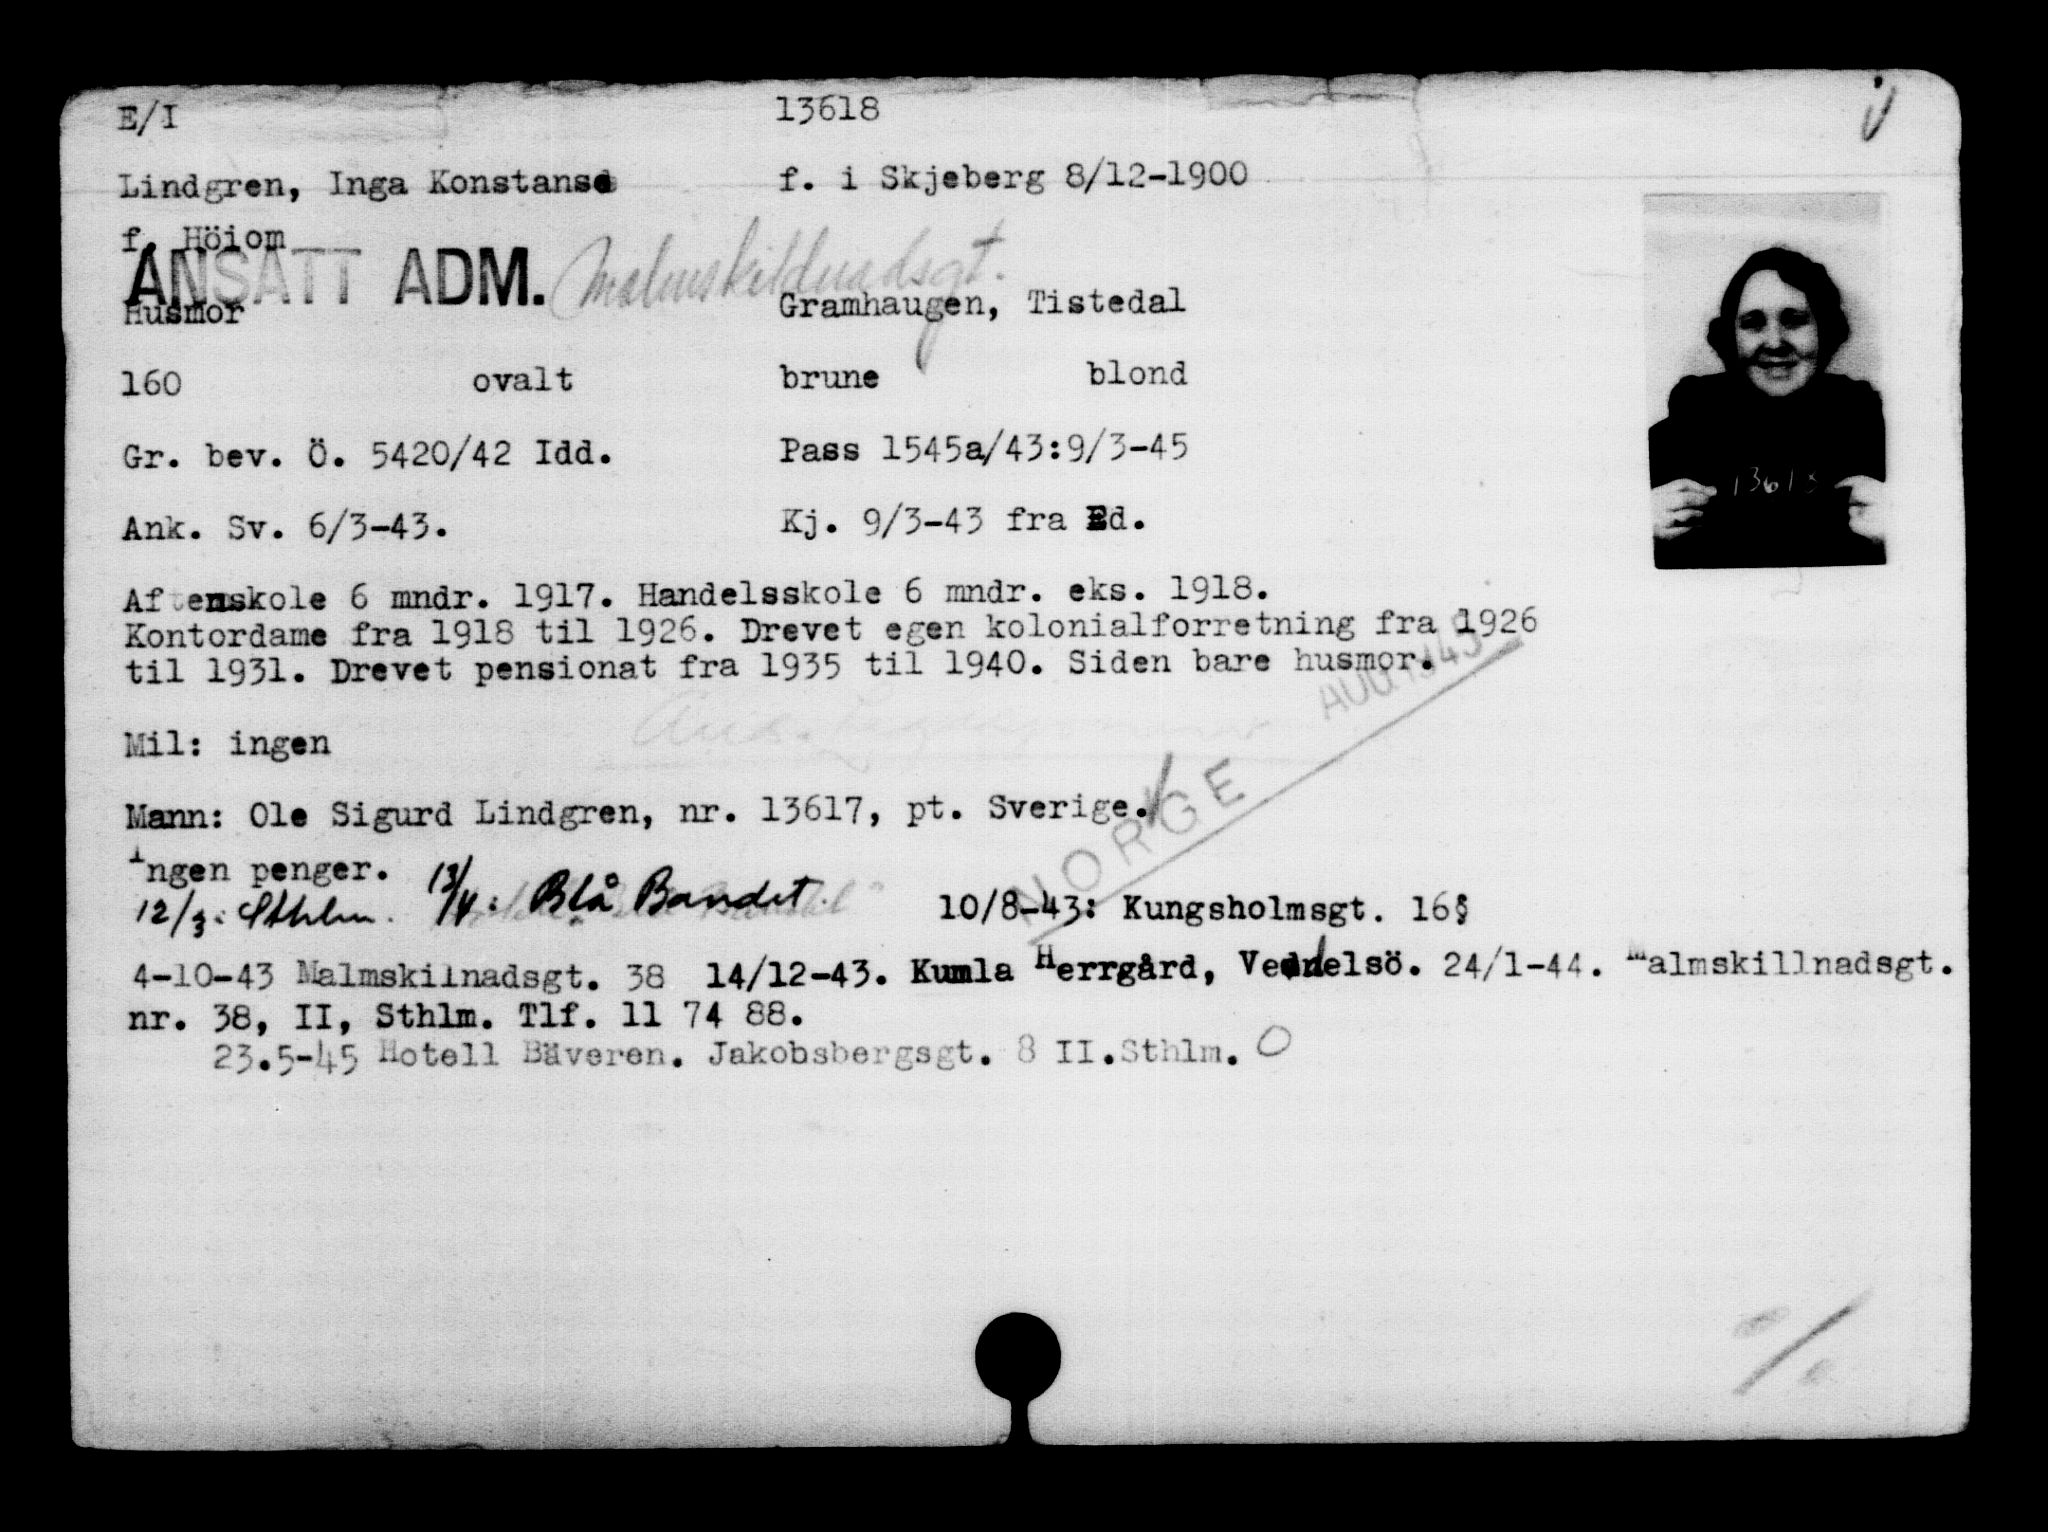 E/I 13618
Lindgren, Inga Konstanse f. i Skjeberg 8/12-1900
f. Höiom
ANSATT ADM. Malmskildnadsgt.
Husmor Gramhaugen, Tistedal
160 ovalt brune blond
Gr. bev. Ö. 5420/42 Idd. Pass 1545a/43:9/3-45
Ank. Sv. 6/3-43. Kj. 9/3-43 fra Ed.
13618
Aftenskole 6 mndr. 1917. Handelsskole 6 mndr. eks. 1918.
Kontordame fra 1918 til 1926. Drevet egen kolonialforretning fra 1926
til 1931. Drevet pensionat fra 1935 til 1940. Siden bare husmor.
AUG 1945
Mil: ingen
NORGE
Mann: Ole Sigurd Lindgren, nr. 13617, pt. Sverige.
Ingen penger.
12/3: Sthlm. 13/4: Blå Bandet. 10/8-43: Kungsholmsgt. 16§
4-10-43 Malmskilnadsgt. 38 14/12-43. Kumla Herrgård, Vendelsö. 24/1-44. Malmskillnadsgt.
nr. 38, II, Sthlm. Tlf. 11 74 88.
23.5-45 Hotell Bäveren. Jakobsbergsgt. 8 II.Sthlm. O